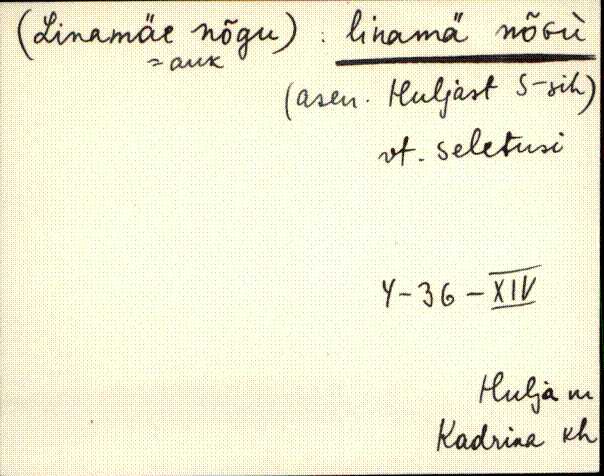 (Linamäe nõgu) : linamä nõGù
= auk
(asen. Huljast S-sih)
vt. seletusi
4-36-XIV
Hulja m
Kadrina kh